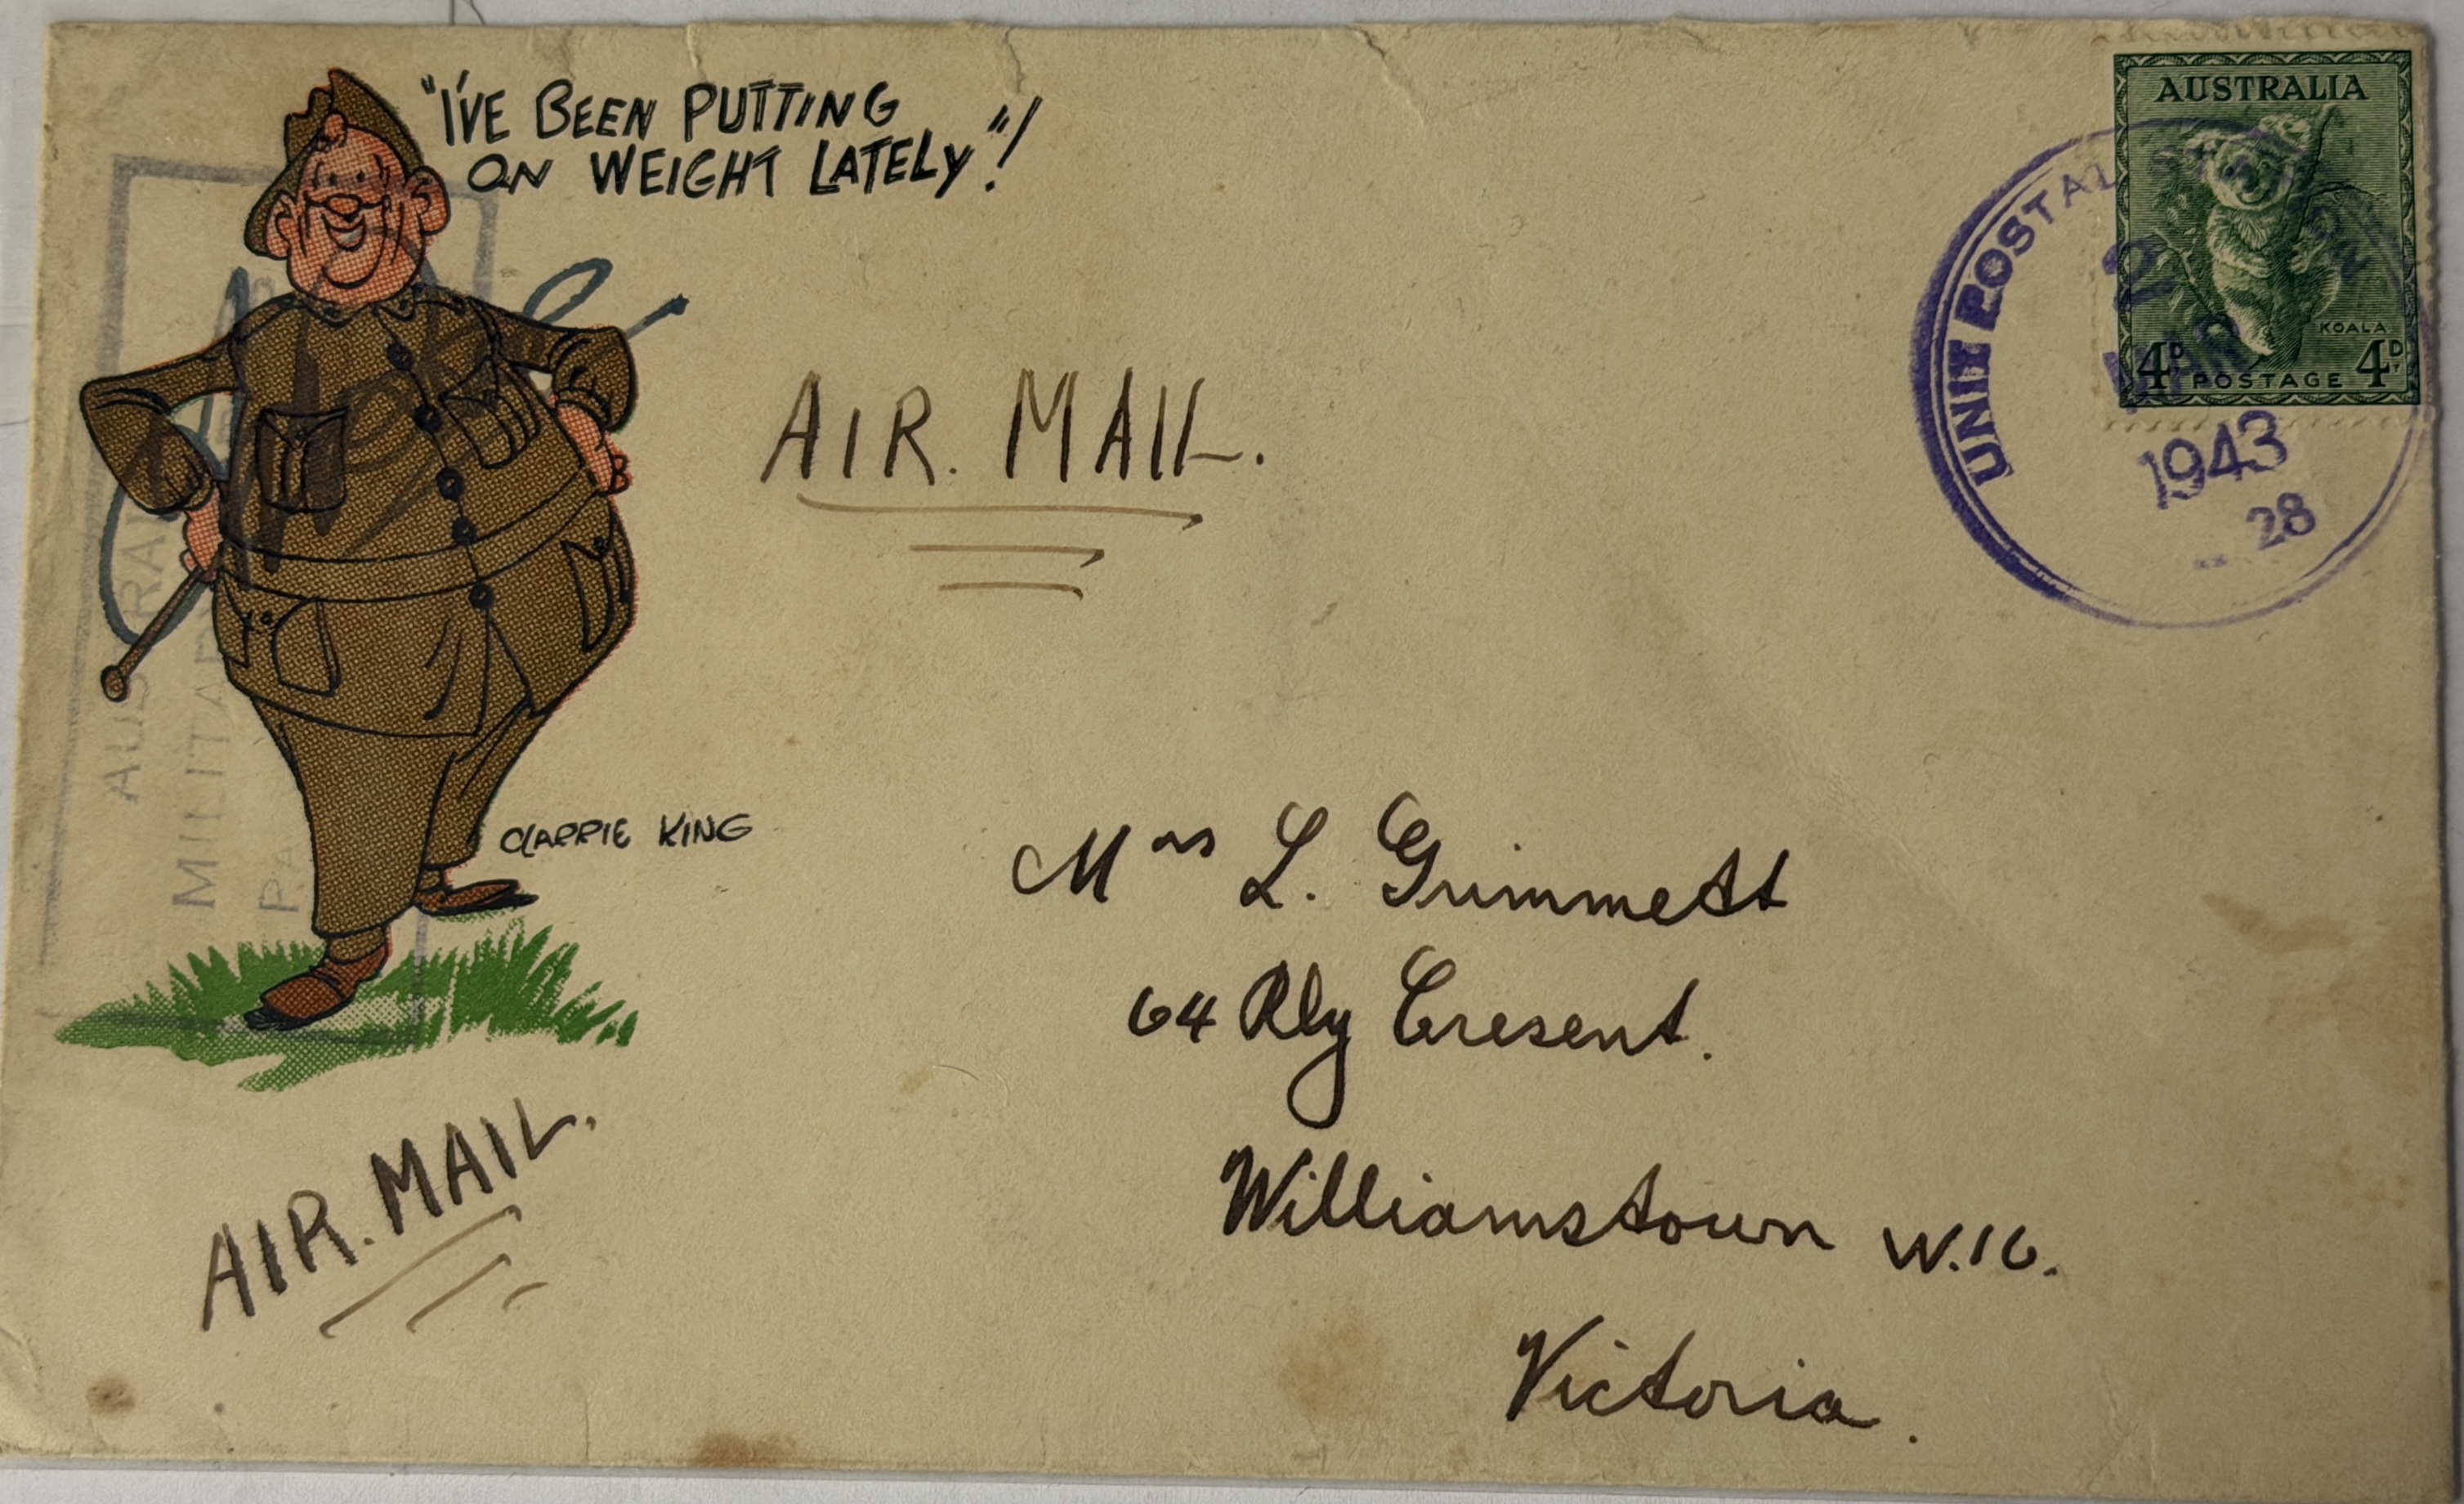 "I'VE BEEN PUTTING
ON WEIGHT LATELY"!
AUSTRALIA
KOALA
4D POSTAGE 4D
UNIT POSTAL
MAR
1943
28
AIR. MAIL.
MILITARY
CLARRIE KING
Mrs L. Grimmett
64 Rly Cresent.
Williamstown W.16.
Victoria.
AIR. MAIL.